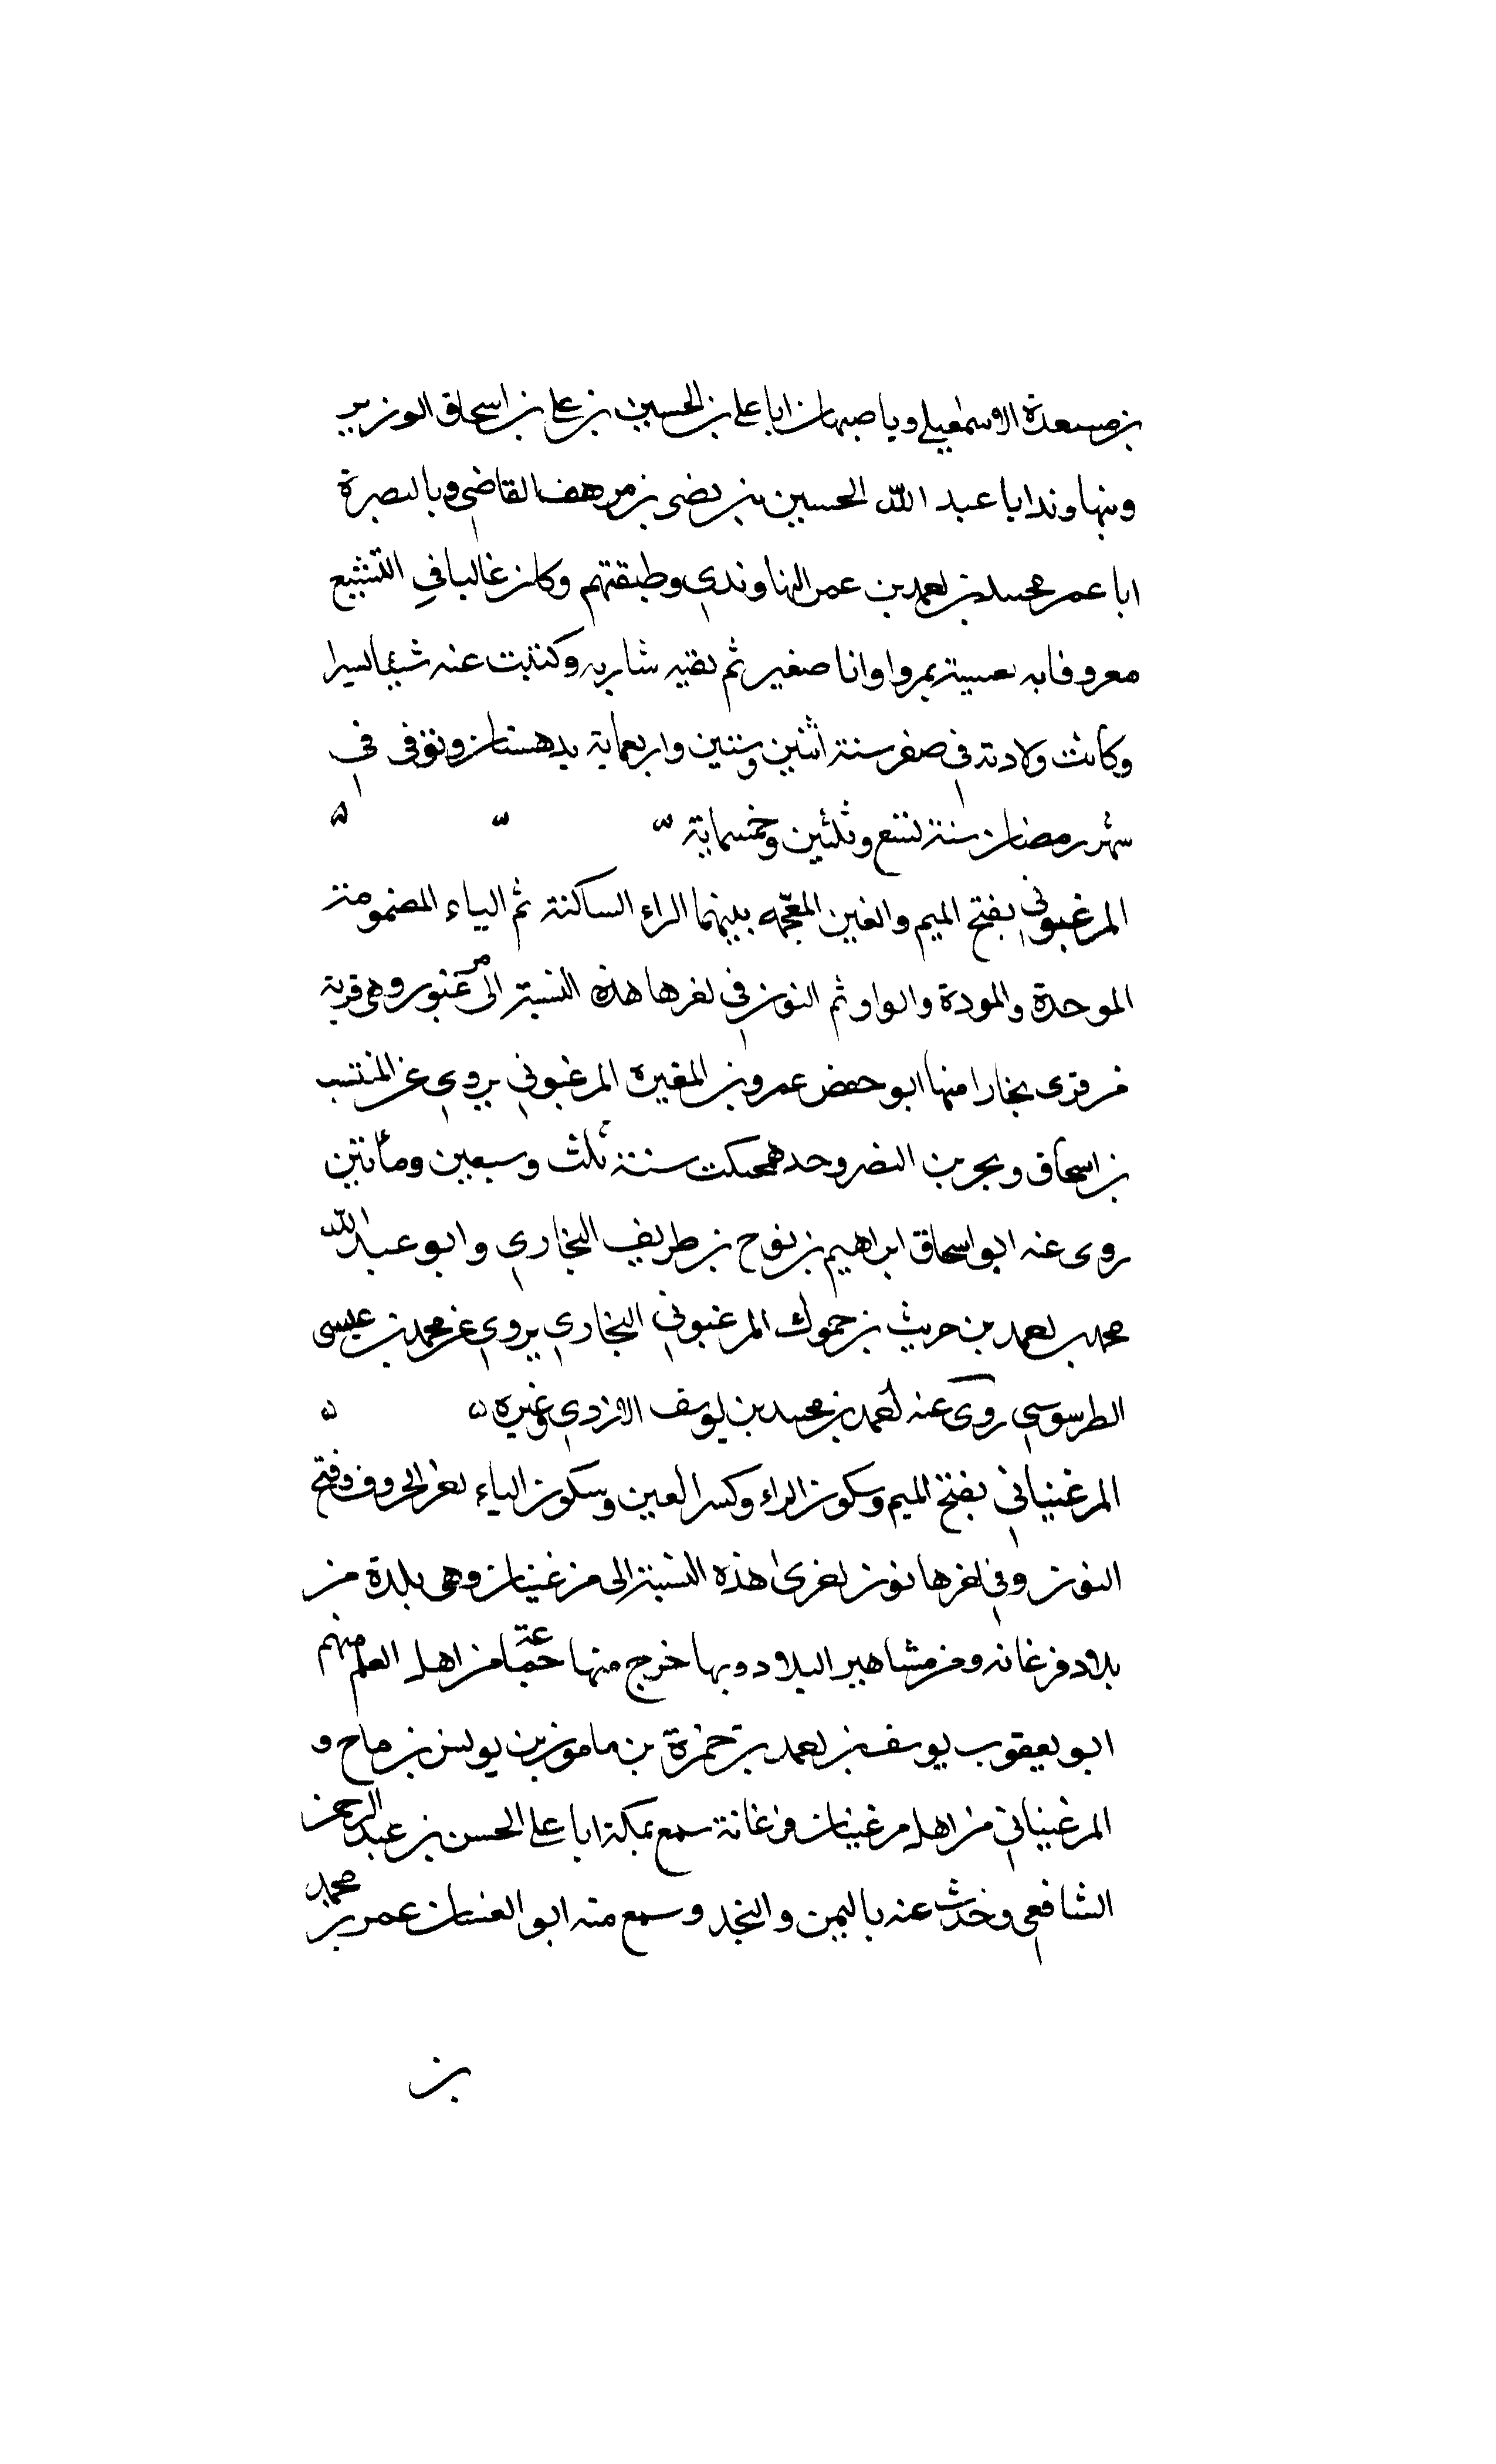 بن مسعدة الاسمعيلي وباصبهان ابا علي بن الحسين بن علي بن اسحاق الوزير
وبنهاوند ابا عبد الله الحسين بن نصر بن مرهف القاضي وبالبصرة
ابا عمر محمد بن احمد بن عمر النهاوندي وطبقتهم وكان غاليا في التشيع
معروفا به بمروا وانا صغير ثم لقيته وكتبت عنه شيئا يسيرا
وكانت ولادته في صفر سنة اثنين وستين واربعماية بدهستان وتوفى في
شهر رمضان سنة تسع وثلثين وخمسماية
المرغبوني بفتح الميم والغين المعجمه بينهما الراء الساكنة ثم الباء المضمومة
الموحدة والواو ثم النون في اخرها هذه النسبة الى مرغبون وهي قرية
من قرى بخارا منها ابو حفص عمرو بن المغيره المرغبوني يروي عن المسيب
بن اسحاق وبحر بن النضر وحدهم سنة ثلث وسبعين ومأتين
روى عنه ابو اسحاق ابراهيم بن نوح بن طريف البخاري وابو عبد الله
محمد بن احمد بن حريث بن حموك المرغبوني البخاري يروي عن محمد بن عيسى
الطرسوسي روى عنه احمد بن محمد بن يوسف الازدي وغيره
المرغيناني بفتح الميم وسكون الراء وكسر الغين وسكون الياء اخر الحروف وفتح
النون وفي اخرها نون اخرى هذه النسبة الى مرغينان وهي بلدة من
بلاد فرغانه ومن مشاهير البلاد وبها خرج منها جماعة من اهل العلم منهم
ابو يعقوب يوسف بن احمد بن حمزة بن مامون بن يونس بن ماح و
المرغيناني من اهل مرغينان فرغانة سمع بمكة ابا علي الحسن بن عبد الرحمن
الشافعي وحدث عنه باليمن والنجد وسمع منه ابو الفتيان عمر بن محمد
بن